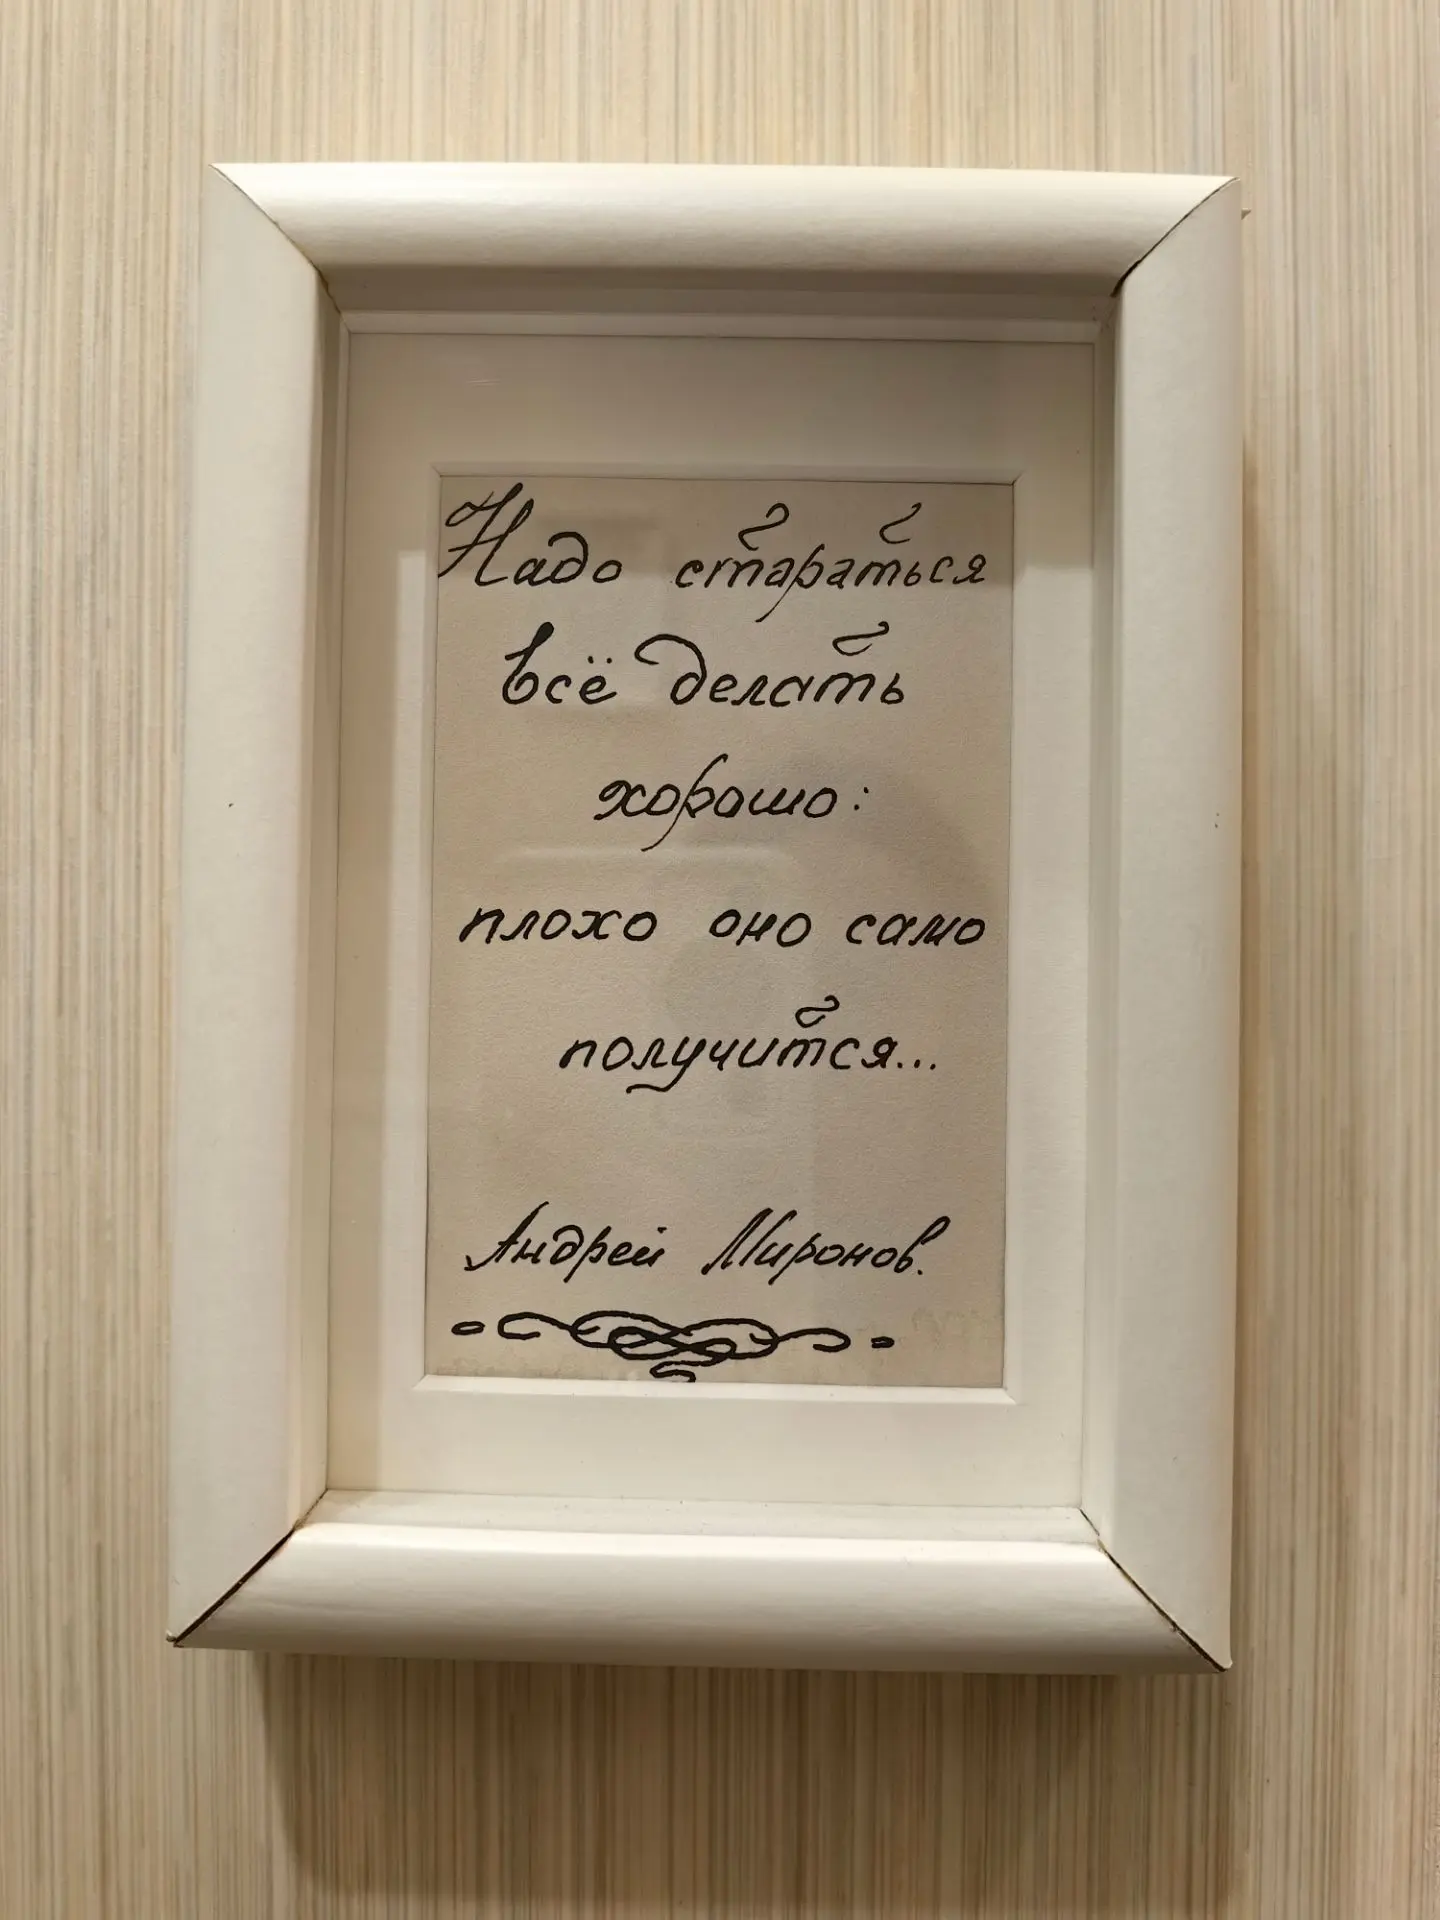 Надо стараться
всё делать
хорошо:
плохо оно само
получится...
Андрей Миронов.